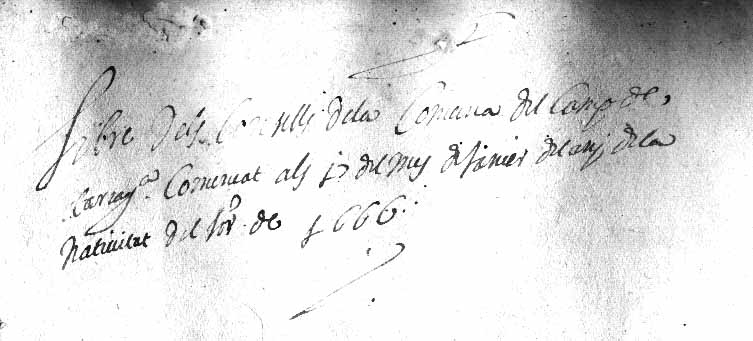 Llibre dels Consells dela Comuna del Camp de
Tarragª. Comensat als de del mes de Janer del any dela
Nativitat del Sor. de 1666.